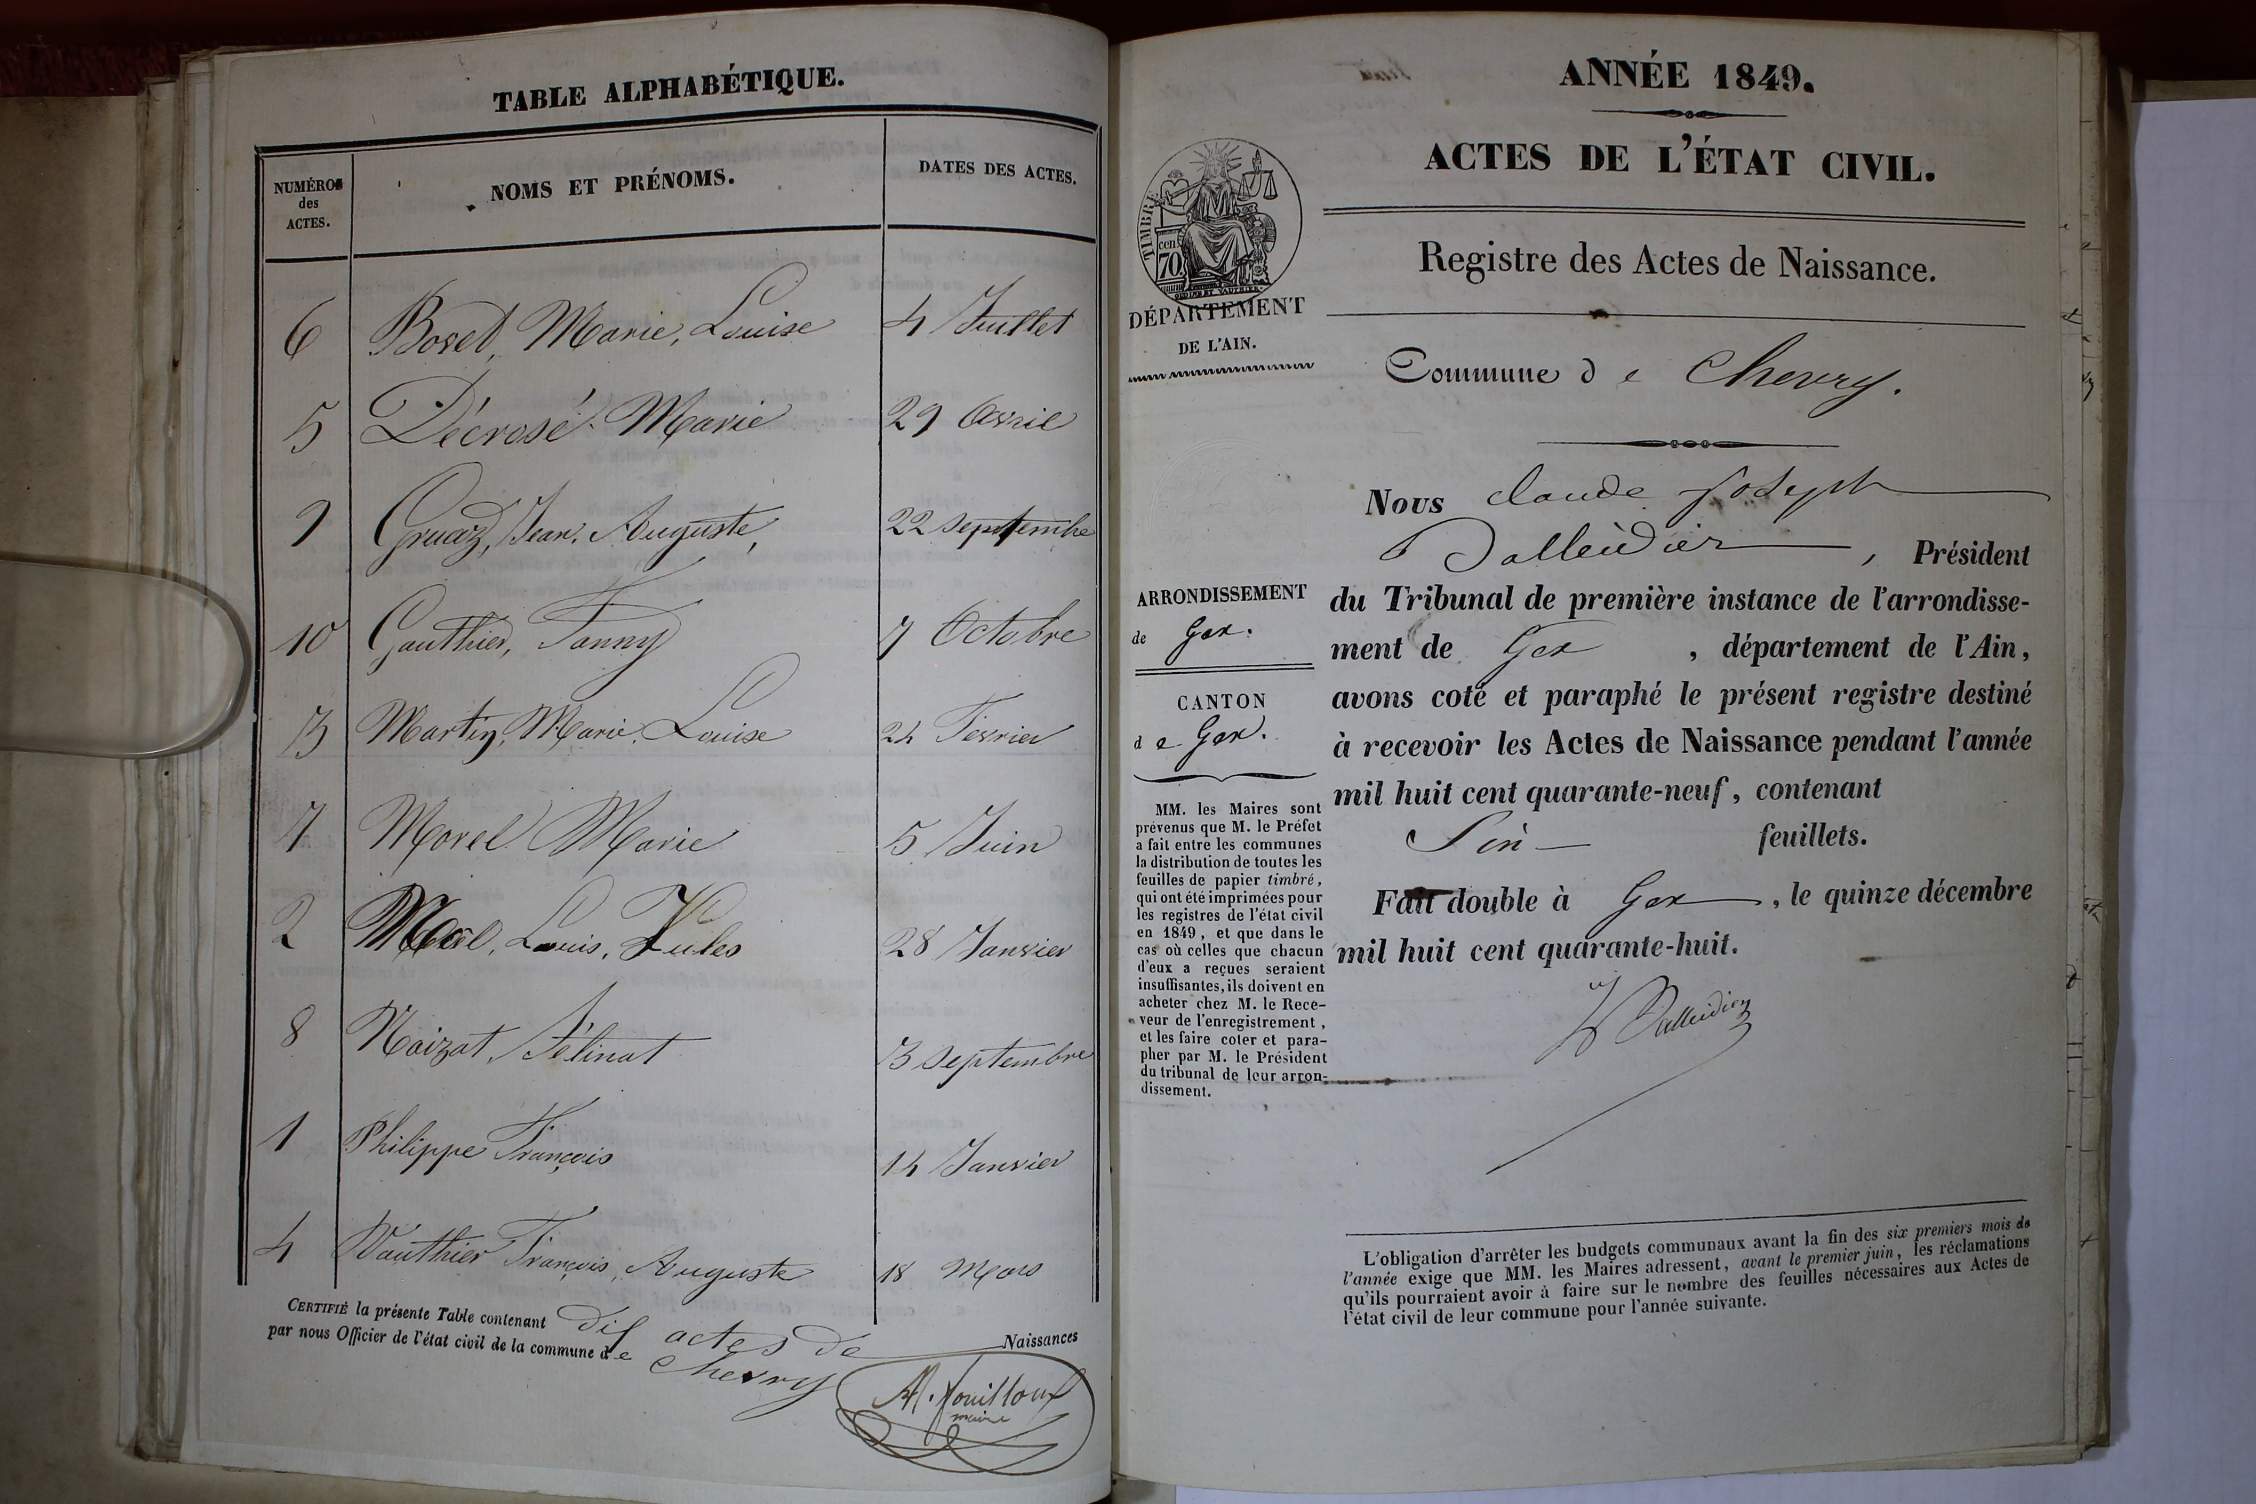 TABLE ALPHABÉTIQUE.
NUMÉROS des ACTES. NOMS ET PRÉNOMS. DATES DES ACTES.
6 Bovet, Marie, Louise 4 Juillet
5 Décrosé Marie 29 Avril
9 Gruaz, Jean, Auguste, 22 septembre
10 Gauthier, Fanny 7 Octobre
3 Martin, Marie, Louise 24 Février
7 Morel Marie 5 Juin
2 Morel, Louis, Jules 28 Janvier
8 Naizot, Félinat 3 septembre
1 Philippe François 14 Janvier
4 Vauthier François, Auguste 18 Mars
CERTIFIÉ la présente Table contenant dix actes de Naissances
par nous Officier de l'état civil de la commune de Chevry
M. fouilloux
maire
ANNÉE 1849.
ACTES DE L'ÉTAT CIVIL.
TIMBRE
cen
70
DÉPARTEMENT
DE L'AIN.
Registre des Actes de Naissance.
Commune de Chevry.
ARRONDISSEMENT
de Gex.
CANTON
de Gex.
MM. les Maires sont
prévenus que M. le Préfet
a fait entre les communes
la distribution de toutes les
feuilles de papier timbré,
qui ont été imprimées pour
les registres de l'état civil
en 1849, et que dans le
cas où celles que chacun
d'eux a reçues seraient
insuffisantes, ils doivent en
acheter chez M. le Rece-
veur de l'enregistrement,
et les faire coter et para-
pher par M. le Président
du tribunal de leur arron-
dissement.
Nous claude joseph
, Président
du Tribunal de première instance de l'arrondisse-
ment de Gex , département de l'Ain,
avons coté et paraphé le présent registre destiné
à recevoir les Actes de Naissance pendant l'année
mil huit cent quarante-neuf, contenant
feuillets.
Fait double à Gex , le quinze décembre
mil huit cent quarante-huit.
L'obligation d'arrêter les budgets communaux avant la fin des six premiers mois de
l'année exige que MM. les Maires adressent, avant le premier juin, les réclamations
qu'ils pourraient avoir à faire sur le nombre des feuilles nécessaires aux Actes de
l'état civil de leur commune pour l'année suivante.